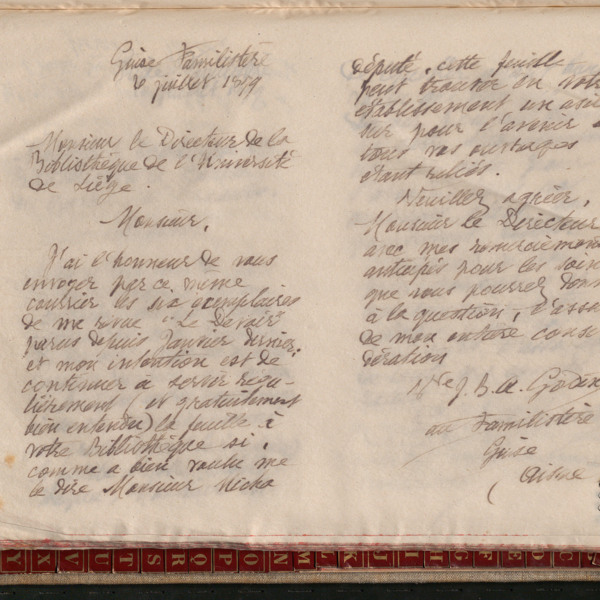 Guise Familistère
6 juillet 1879
Monsieur le Directeur de la
Bibliothèque de l'Université
de Liège.
Monsieur,
J'ai l'honneur de vous
envoyer par ce même
courrier les exemplaires
de ma revue "Le Devoir"
parus depuis Janvier dernier,
et mon intention est de
continuer à servir régu-
lièrement (et gratuitement
bien entendu) la feuille à
votre Bibliothèque si,
comme a bien voulu me
le dire Monsieur
député, cette feuille
peut trouver en votre
établissement un asile
sur pour l'avenir
tous vos ouvrages
étant reliés.
Veuillez agréer,
Monsieur le Directeur
avec mes remerciements
anticipés pour les soins
que vous pourrez donn
à la question, l'assu
de mon entière consi
dération
J. B. A. Godin
au Familistère
Guise
(Aisne
Y X V U T S R Q P O N M L K J I H G F E D C